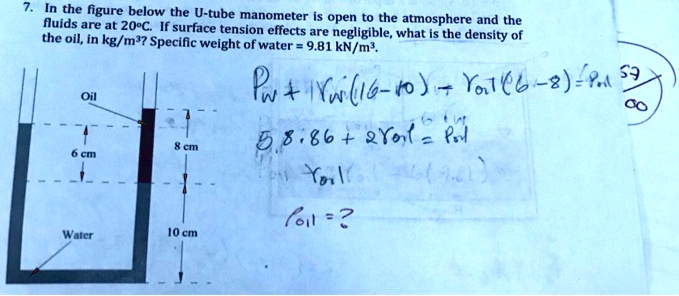 7. In the figure below the U-tube manometer is open to the atmosphere and the
fluids are at 20°C. If surface tension effects are negligible, what is the density of
the oil, in kg/m³? Specific weight of water = 9.81 kN/m³.
Oil
6 cm
8 cm
Water
10 cm
58.86 + 2γoil =
γoil
ρoil = ?